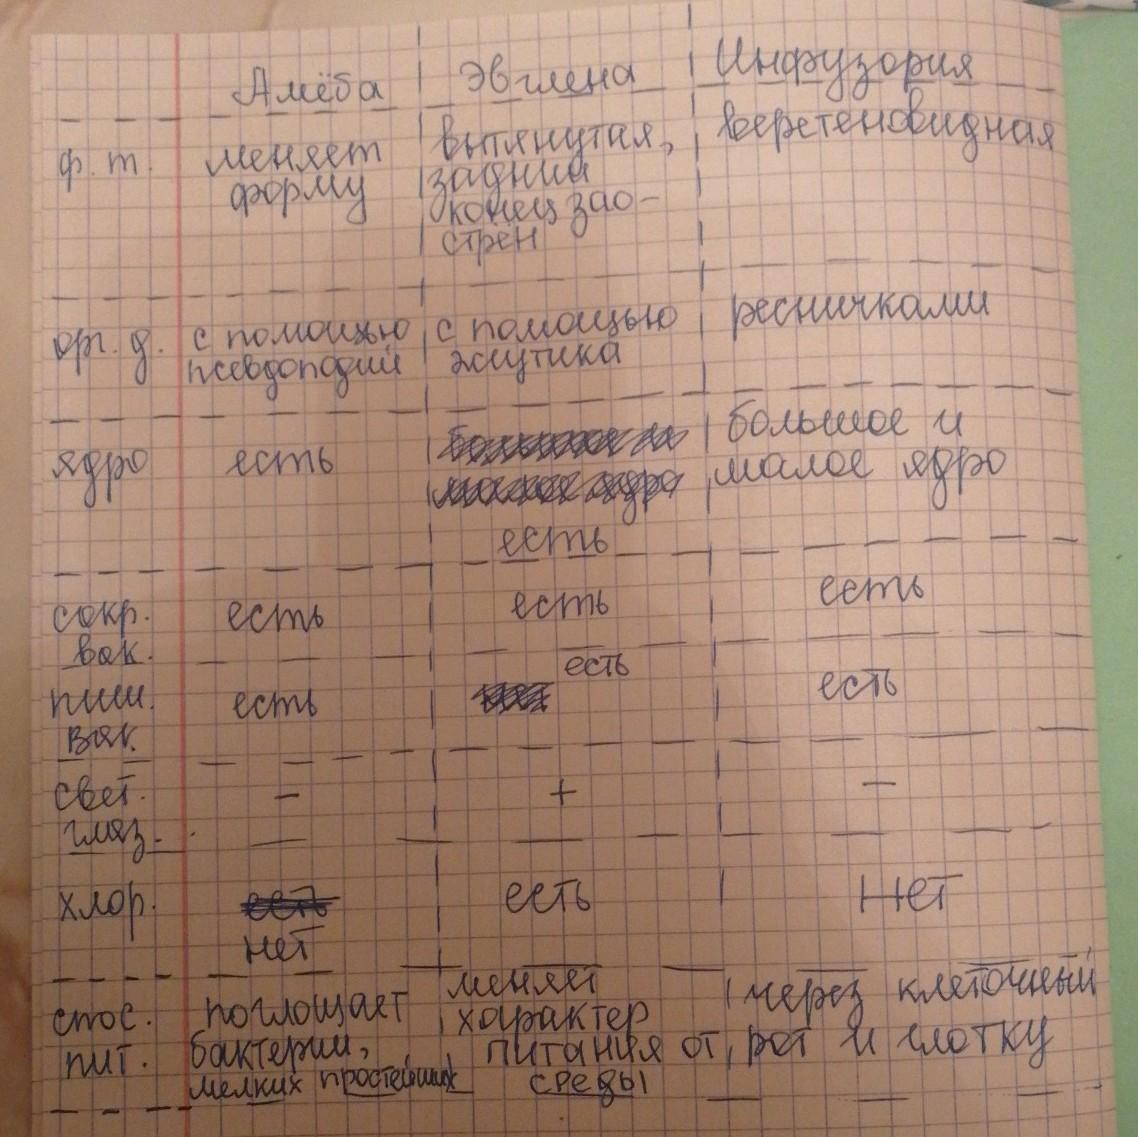 Амёба Эвглена Инфузория
ф. т. меняет форму вытянутая, задний конец заострен веретеновидная
орг. д. с помощью псевдоподий с помощью жгутика ресничками
ядро есть есть большое и малое ядро
сокр. вак. есть есть есть
пищ. вак. есть есть есть
свет. глаз. - + -
хлор. нет есть Нет
спос. пит. поглощает бактерии, мелких простейших меняет характер питания от среды через клеточный рот и глотку